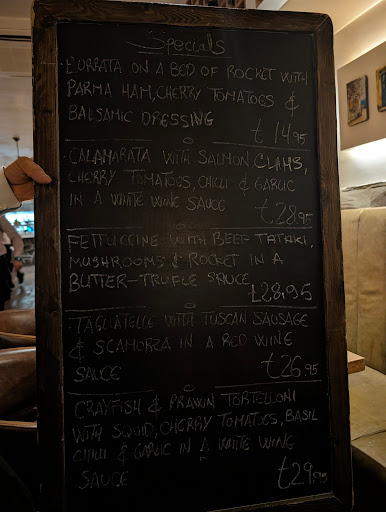 Specials
· BURRATA ON A BED OF ROCKET WITH
PARMA HAM, CHERRY TOMATOES &
BALSAMIC DRESSING
£14.95
· CALAMARATA WITH SALMON, CLAMS,
CHERRY TOMATOES, CHILLI & GARLIC
IN A WHITE WINE SAUCE £28.95
FETTUCCINE WITH BEEF TATAKI,
MUSHROOMS & ROCKET IN A
BUTTER-TRUFLE SAUCE £28.95
· TAGLIATELLE WITH TUSCAN SAUSAGE
& SCAMORZA IN A RED WINE
SAUCE £26.95
CRAYFISH & PRAWN TORTELLONI
WITH SQUID, CHERRY TOMATOES, BASIL
CHILLI & GARLIC IN A WHITE WINE
SAUCE £29.95